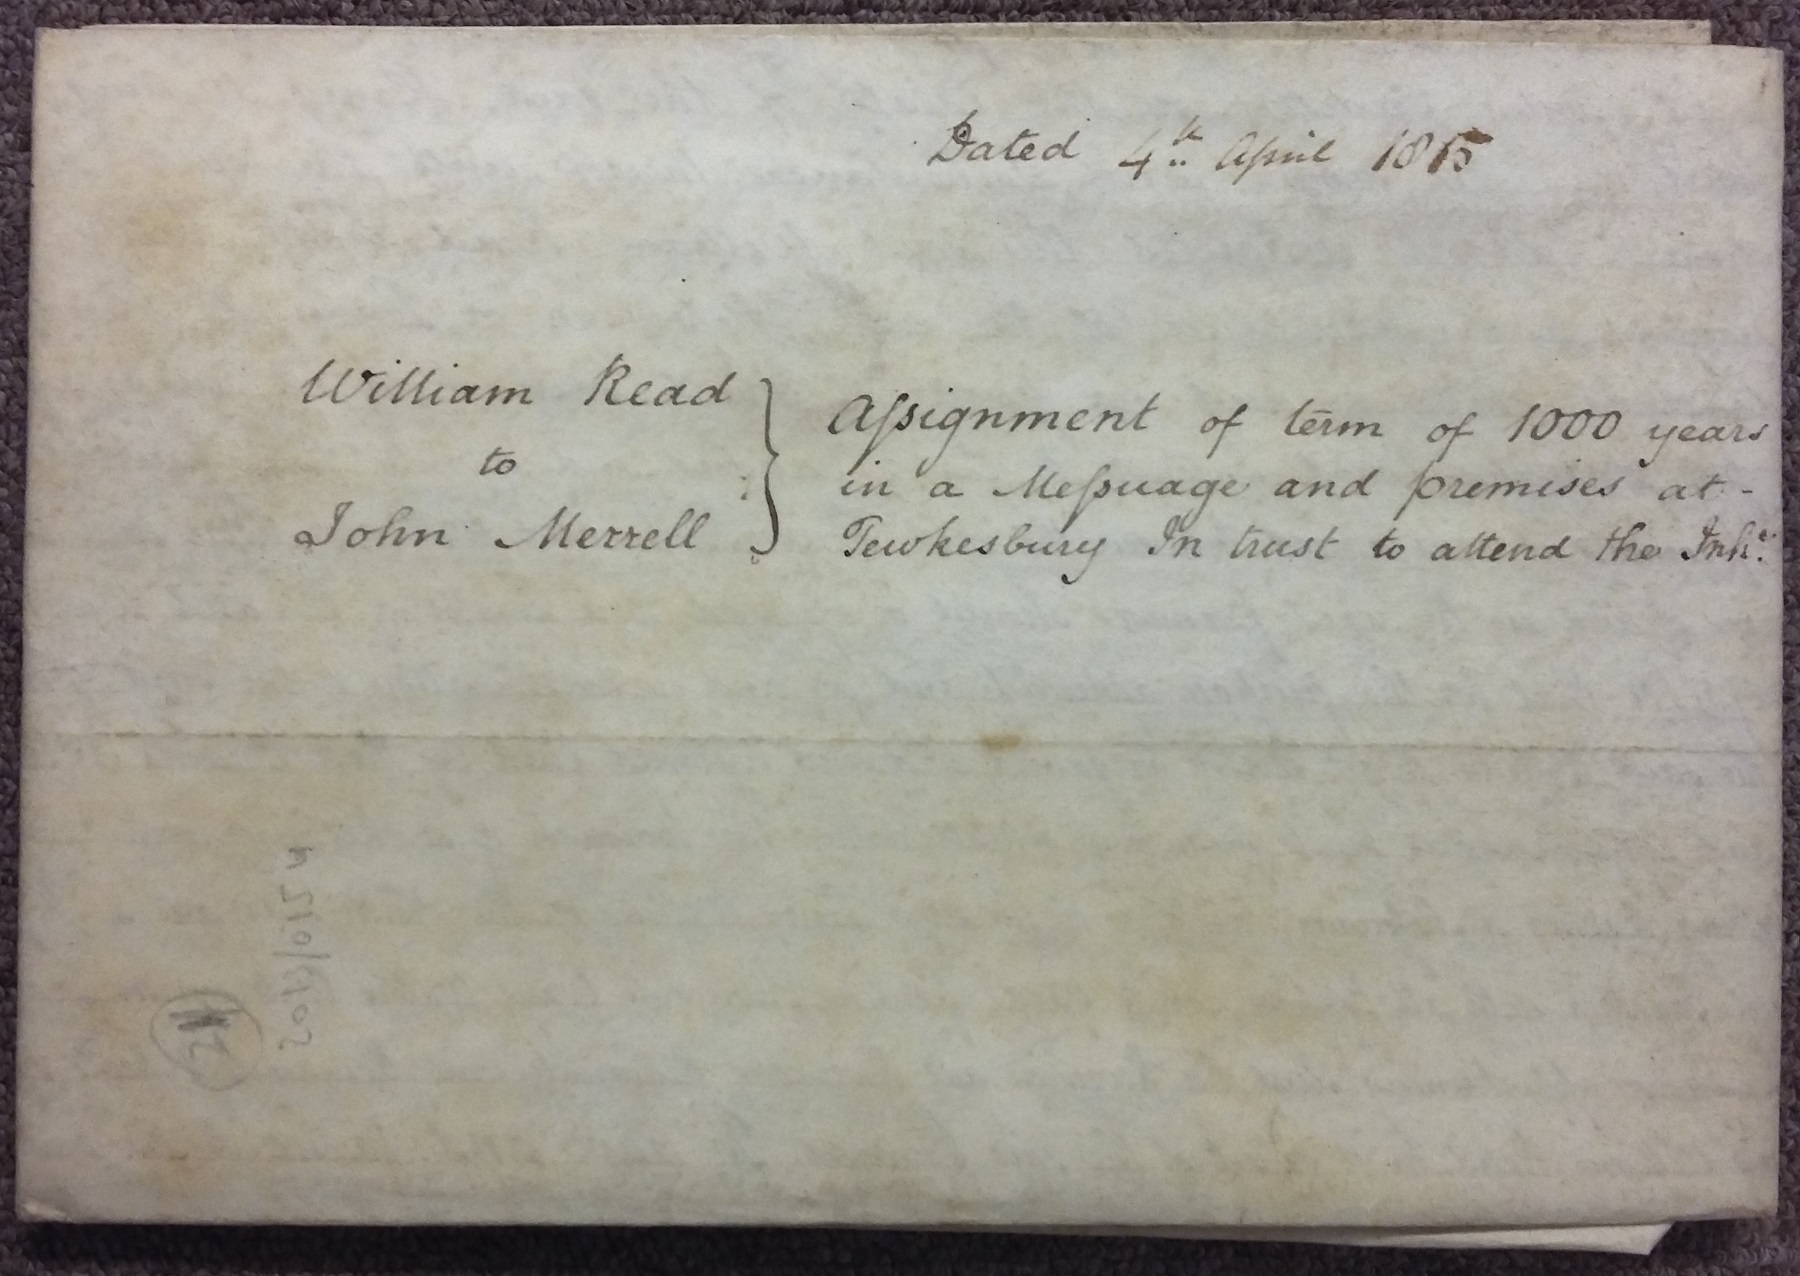 Dated 4th April 1815
William Read
to
John Merrell
Aſsignment of term of 1000 years
in a Meſsuage and premises at -
Tewkesbury In trust to attend the Inhe.